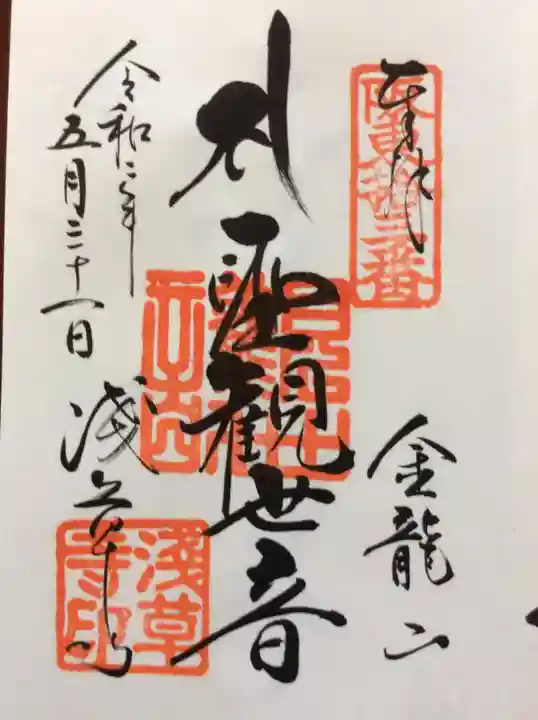 奉拝
坂東拾三番
金龍山
聖観世音
浅草寺
浅草寺印
令和二年
五月三十一日